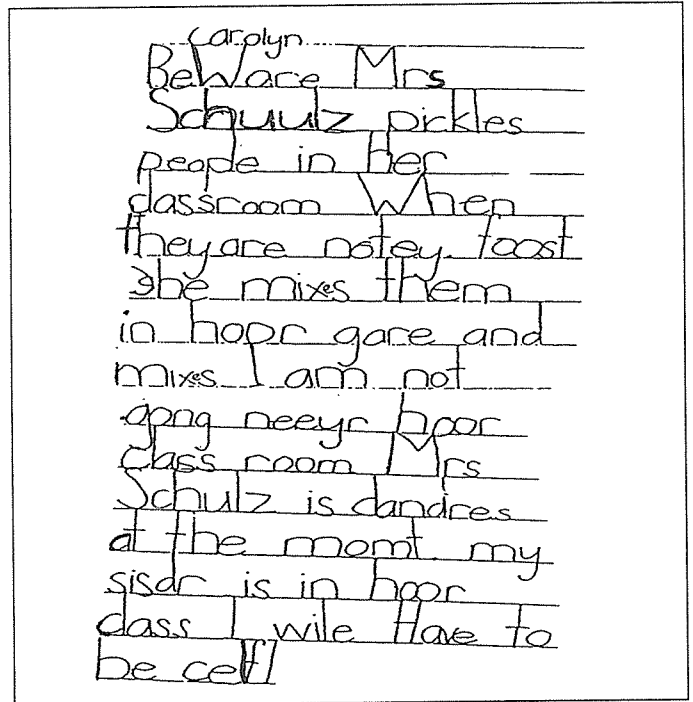 carolyn
BeWare Mrs
Schuulz pickles
people in her
classroom When
they are notey. foost
She mixes them
in hoor gare and
mixes I am not
gong neeyr hoor
class room Mrs
Schulz is dandres
at the momt. my
sisdr is in hoor
class I wile Have to
be cefl